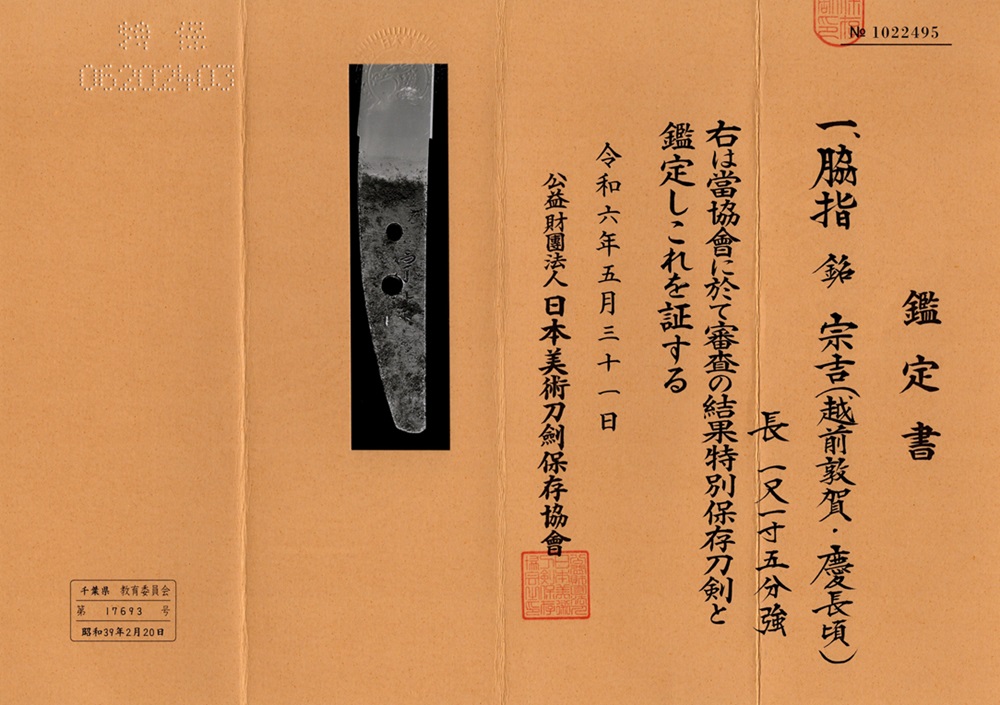 № 1022495
鑑定書
一、脇指 銘 宗吉(越前敦賀・慶長頃)
長 一尺一寸五分強
右は當協會に於て審査の結果特別保存刀剣と
鑑定しこれを証する
令和六年五月三十一日
公益財團法人 日本美術刀劍保存協會
特保
06202403
千葉県 教育委員会
第 17693 号
昭和39年2月20日